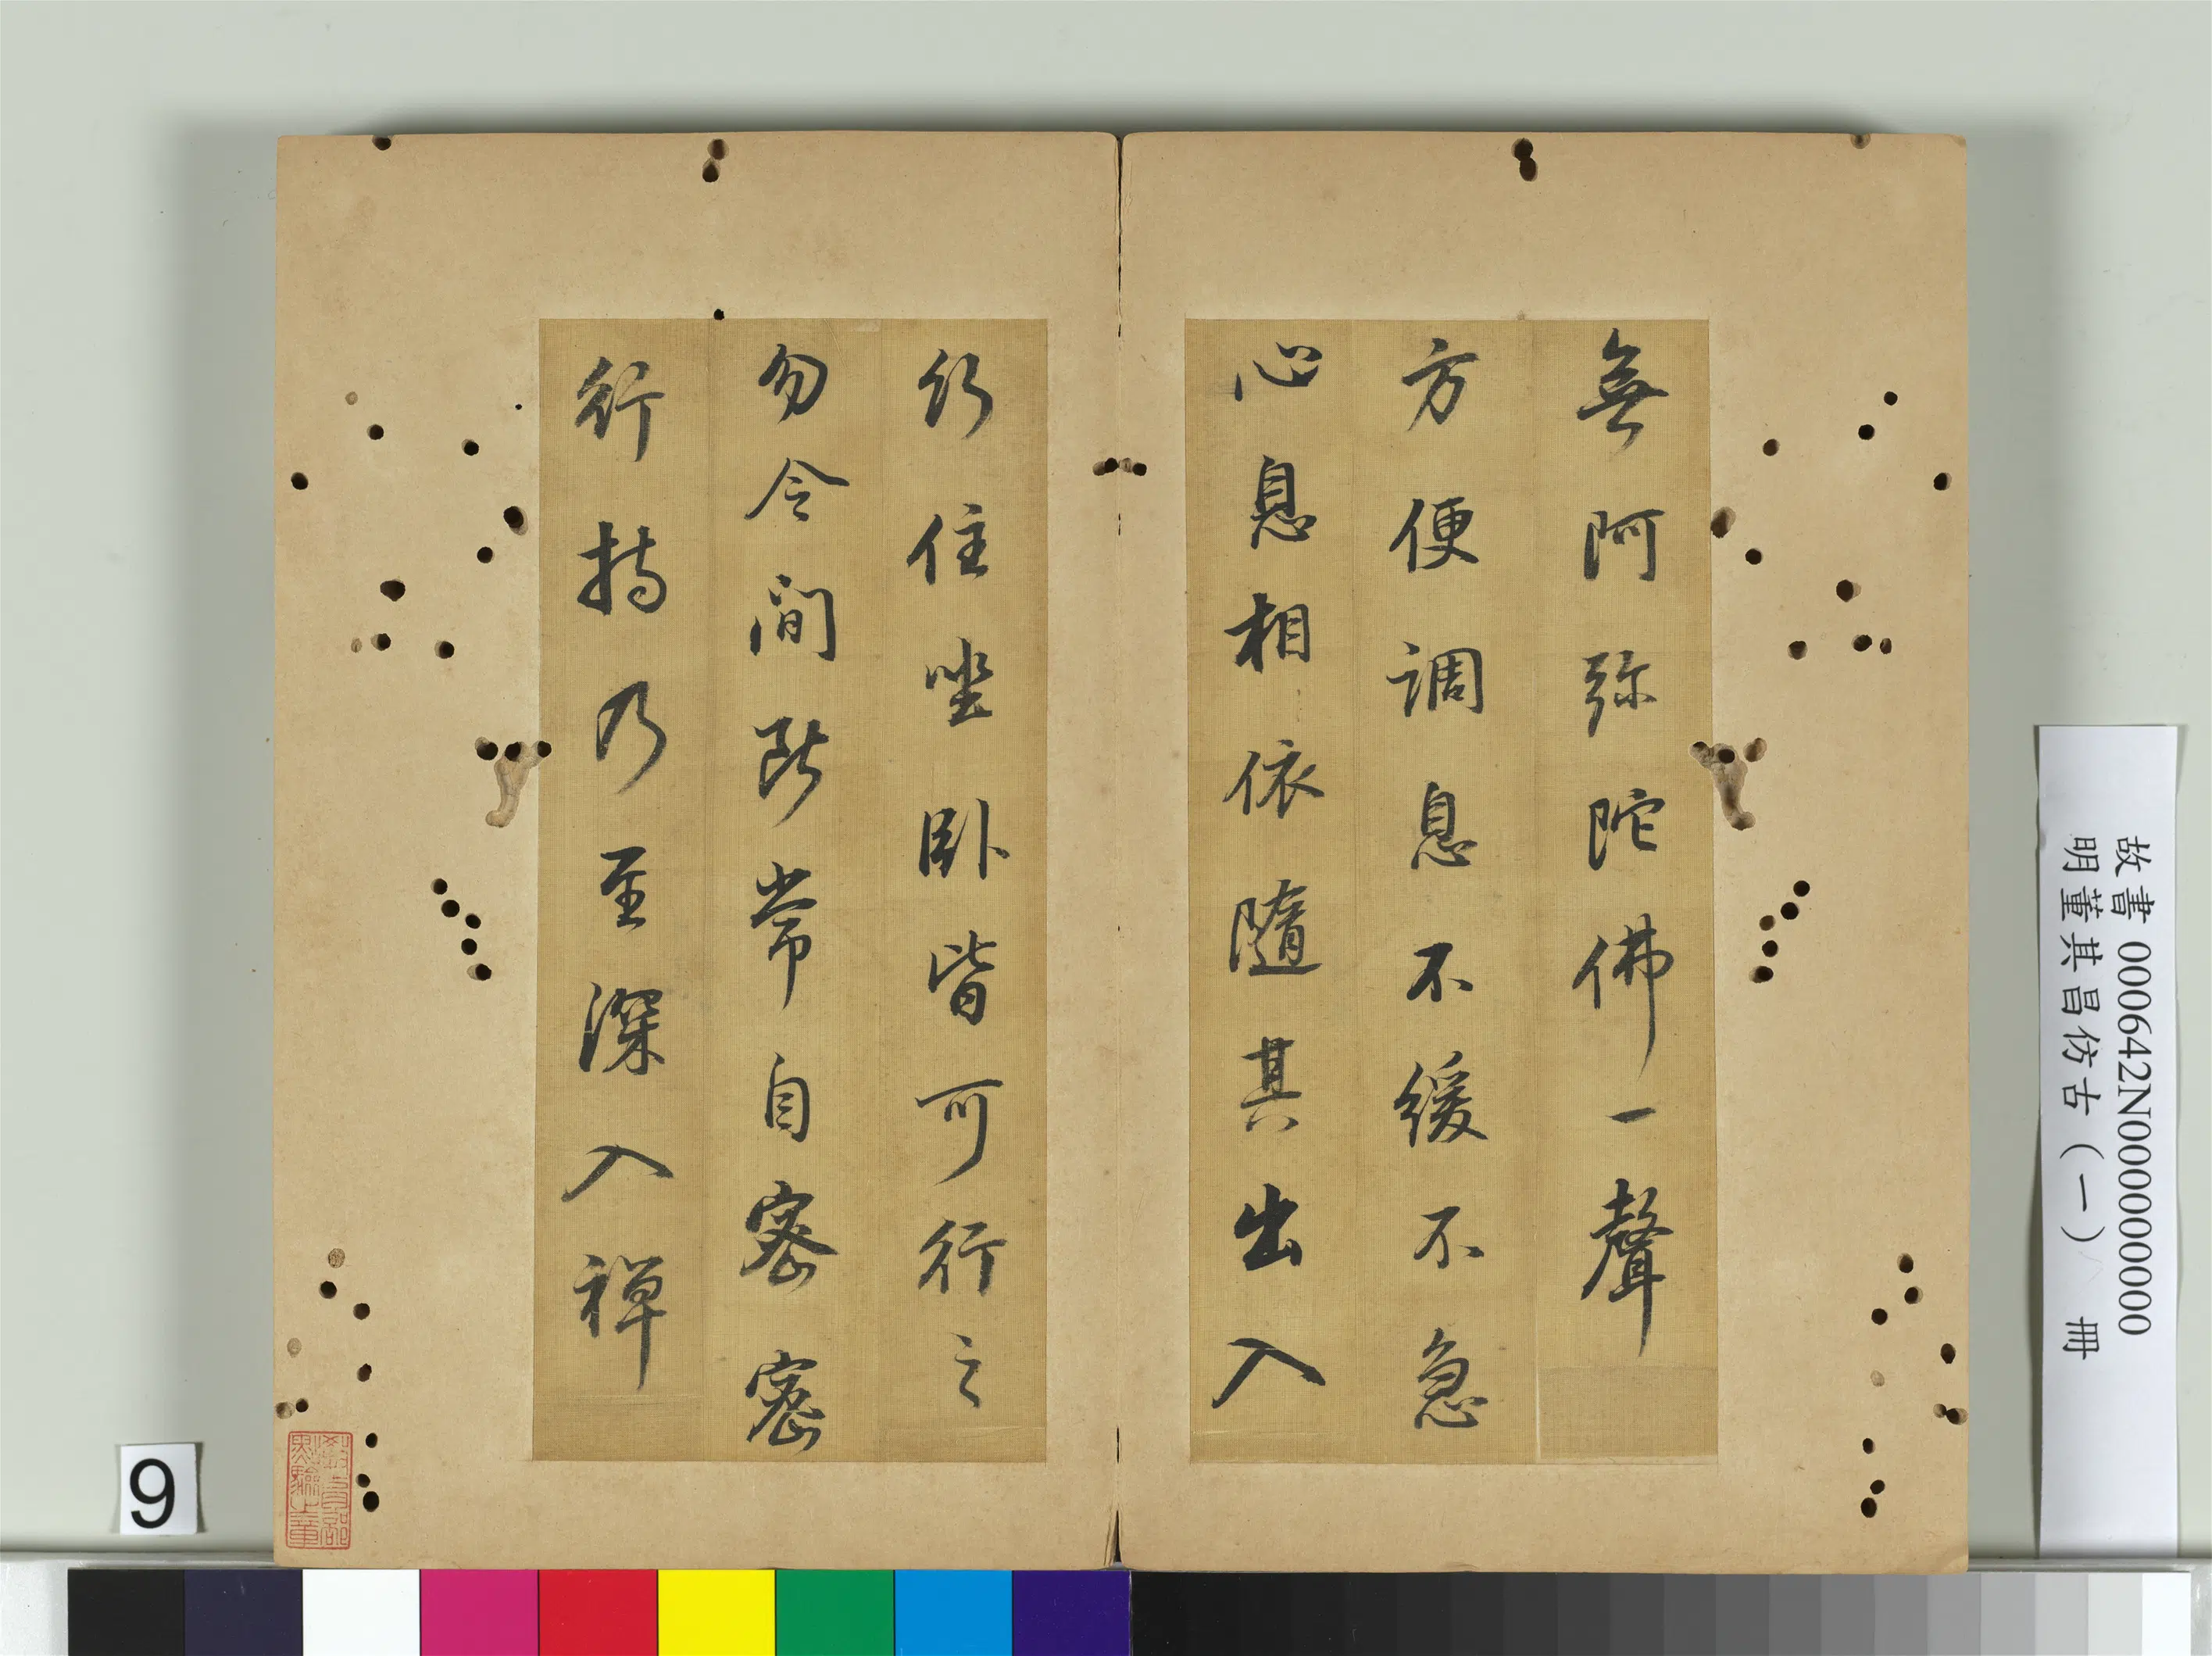 無阿弥陀佛一聲
方便調息不緩不急
心息相依隨其出入
行住坐卧皆可行之
勿令間断常自密密
行持乃至深入禅
故書 000642N000000000
明董其昌仿古（一） 冊
9
教育部
點驗之章